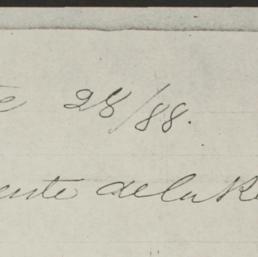 e 28/88.
ente de la Re